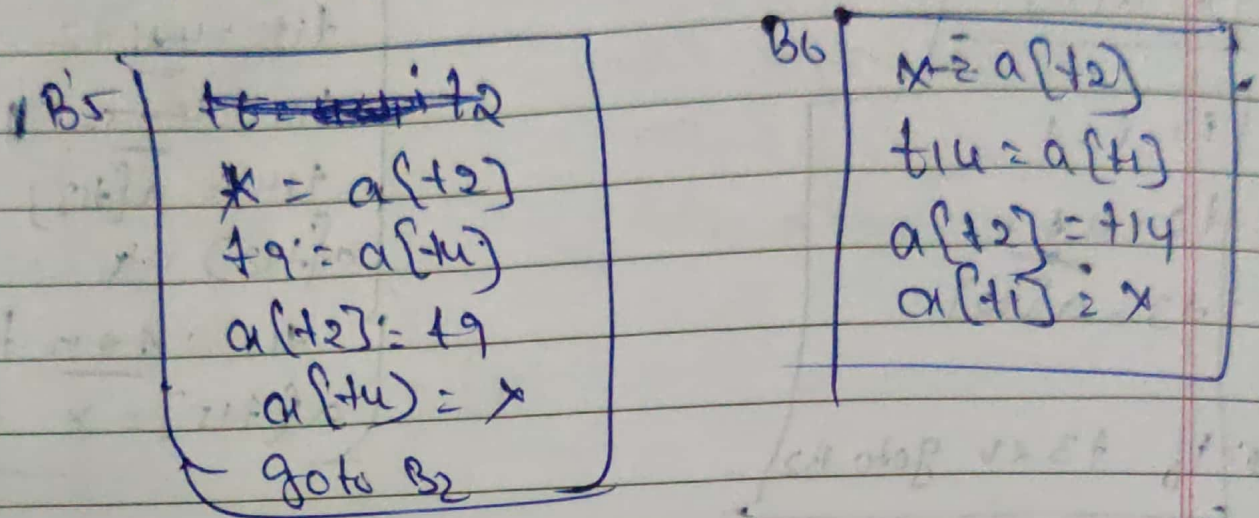 B5
x = a[t2]
t9 = a[t4]
a[t2] = t9
a[t4) = x
goto B2
B6
x = a[t2]
t14 = a[t1]
a[t2] = t14
a[t1] = x